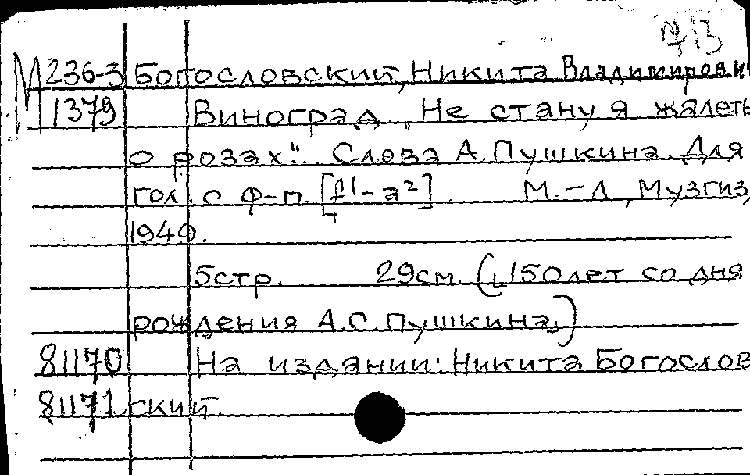 713
М 236-3 Богословский, Никита Владимирови
1379 Виноград „Не стану я жалеть
о розах". Слова А. Пушкина. Для
гол. с ф-п. [f¹-a²]. М.-Л., Музгиз,
1949.
5 стр. 29 см. (150 лет со дня
рождения А.С. Пушкина.)
81170 На издании: Никита Богослов
81171 ский.